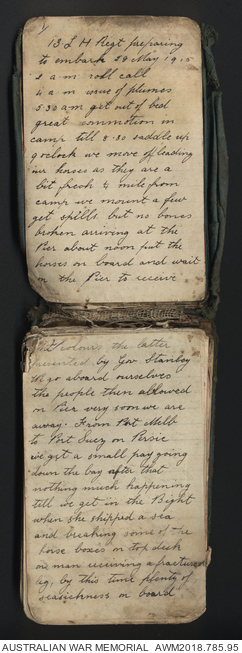 13 L H Regt preparing
to embark 28 May 1915
2 a.m roll call
4 a m issue of plumes
5.30 a.m get out of bed
great commotion in
camp till 8.30 saddle up
9 oclock we move off leading
our horses as they are a
bit fresh ½ mile from
camp we mount a few
get spills but no bones
broken arriving at the
Pier about noon put the
horses on board and wait
on the Pier to receive
colours the latter
presented by Gov Stanley
go aboard ourselves
the people then allowed
on Pier very soon we are
away. From Port Melb
to Port Suez on Persic
we get a small pay going
down the bay after that
nothing much happening
till we get in the Bight
when she shipped a sea
and breaking some of the
horse boxes on top deck
man receiving a fractured
leg, by this time plenty of
seasickness on board
AUSTRALIAN WAR MEMORIAL AWM2018.785.95